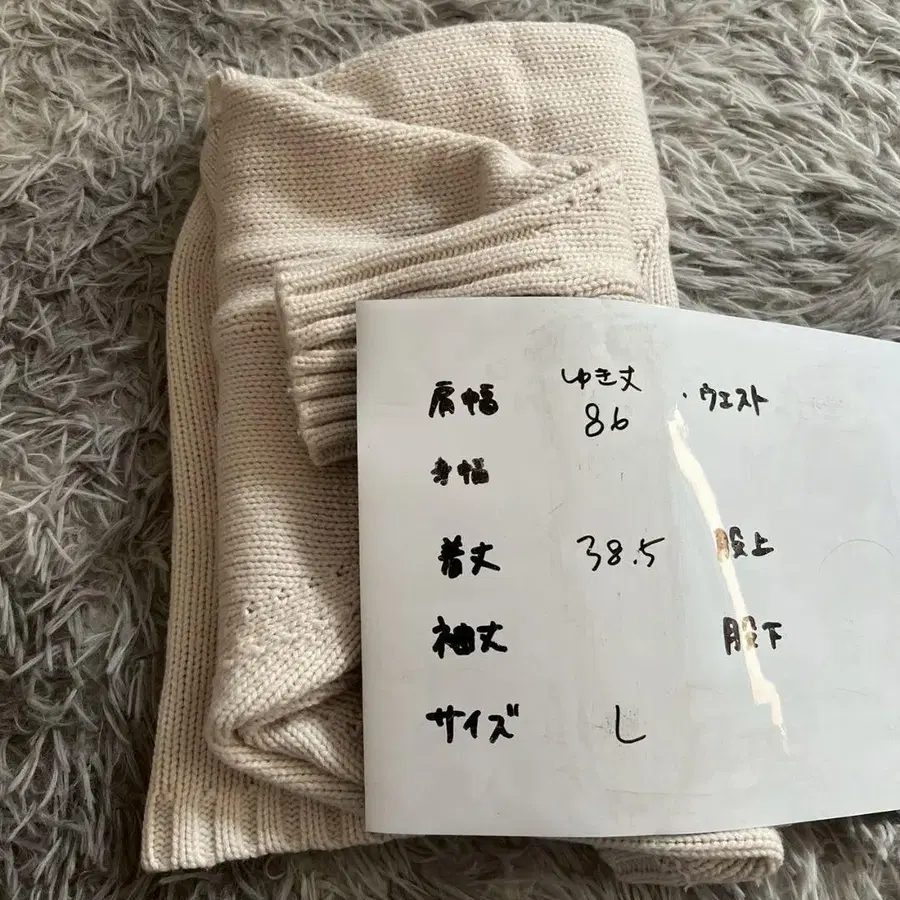 肩幅 ゆき丈 86 ・ウエスト
身幅
着丈 38.5 股上
袖丈 股下
サイズ L